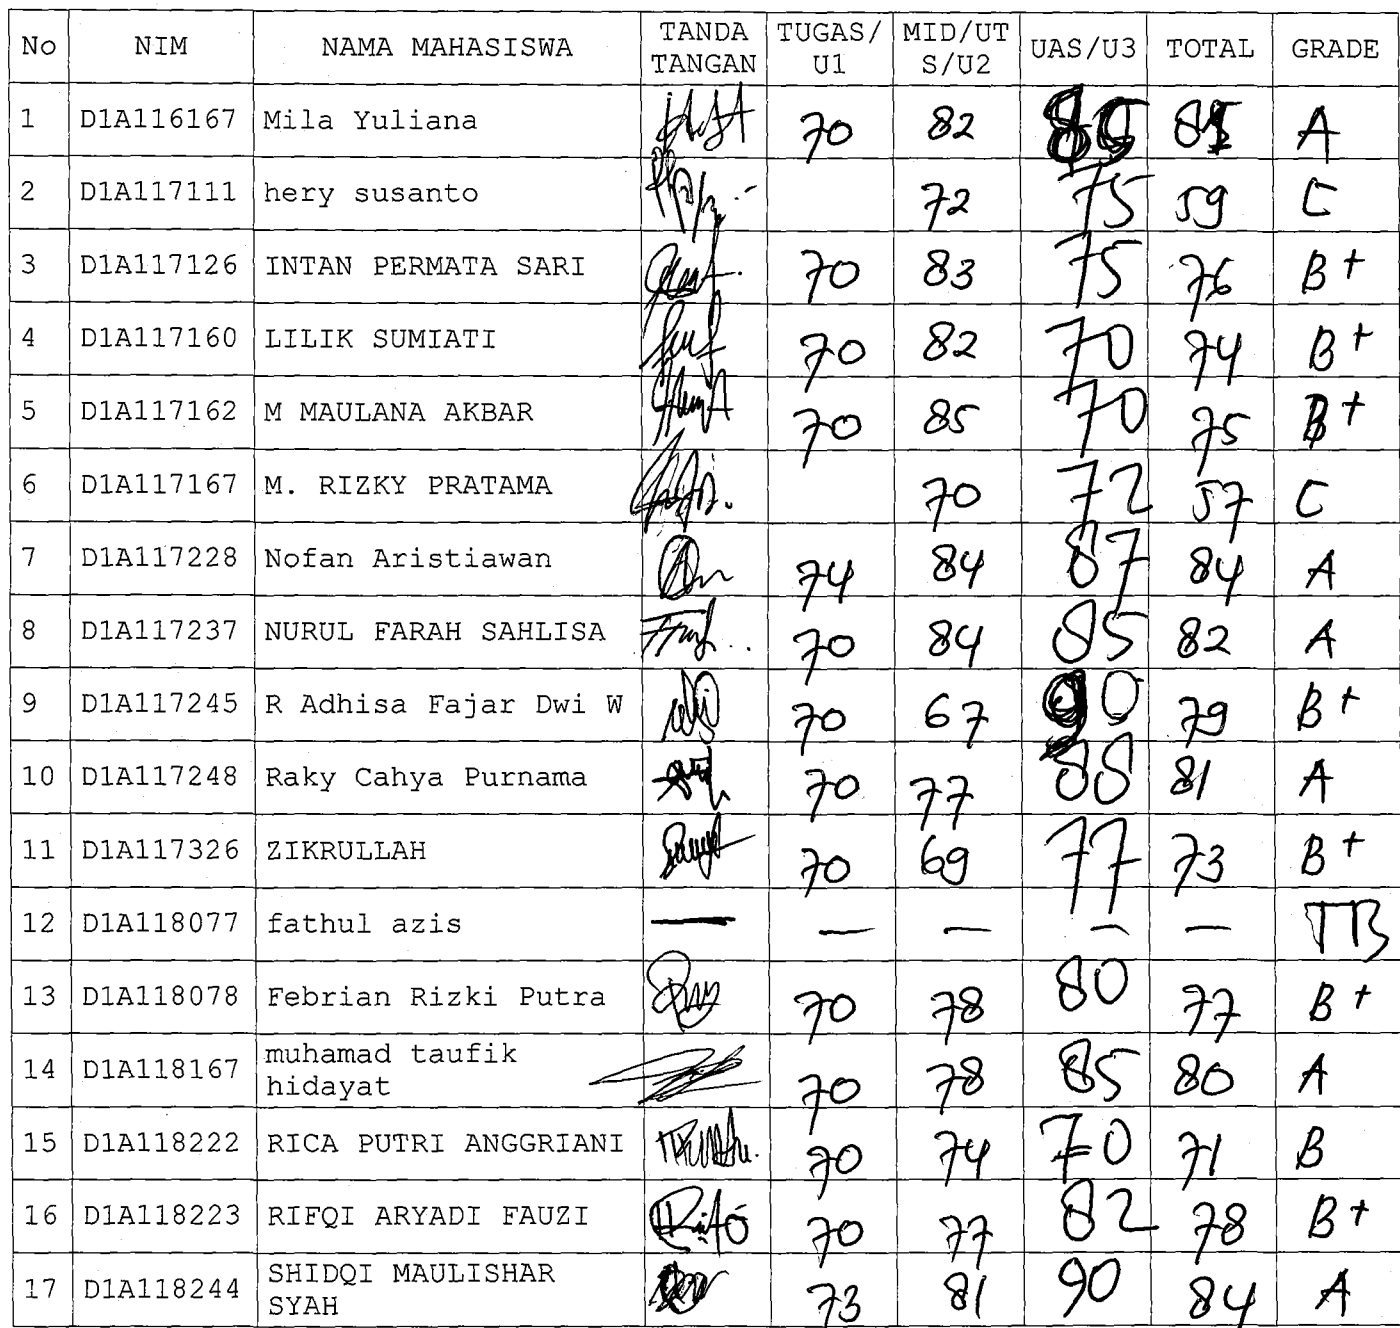 No NIM NAMA MAHASISWA TANDA TANGAN TUGAS/U1 MID/UTS/U2 UAS/U3 TOTAL GRADE
1 D1A116167 Mila Yuliana 70 82 A
2 D1A117111 hery susanto 72 75 59 C
3 D1A117126 INTAN PERMATA SARI 70 83 75 76 B+
4 D1A117160 LILIK SUMIATI 70 82 70 74 B+
5 D1A117162 M MAULANA AKBAR 70 85 70 75 B+
6 D1A117167 M. RIZKY PRATAMA 70 72 57 C
7 D1A117228 Nofan Aristiawan 74 84 87 84 A
8 D1A117237 NURUL FARAH SAHLISA 70 84 85 82 A
9 D1A117245 R Adhisa Fajar Dwi W 70 67 90 79 B+
10 D1A117248 Raky Cahya Purnama 70 77 88 81 A
11 D1A117326 ZIKRULLAH 70 69 77 73 B+
12 D1A118077 fathul azis — — — — — TTB
13 D1A118078 Febrian Rizki Putra 70 78 80 77 B+
14 D1A118167 muhamad taufik
hidayat 70 78 85 80 A
15 D1A118222 RICA PUTRI ANGGRIANI 70 74 70 71 B
16 D1A118223 RIFQI ARYADI FAUZI 70 77 82 78 B+
17 D1A118244 SHIDQI MAULISHAR
SYAH 73 81 90 84 A